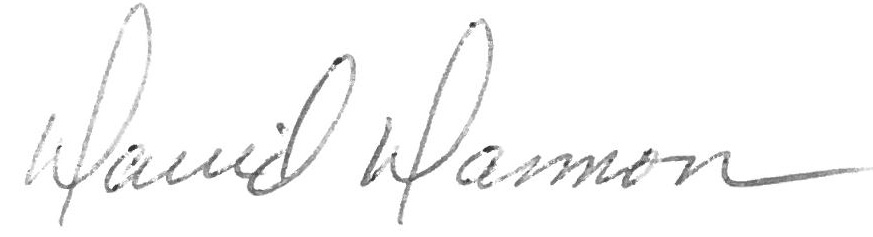 David Damon